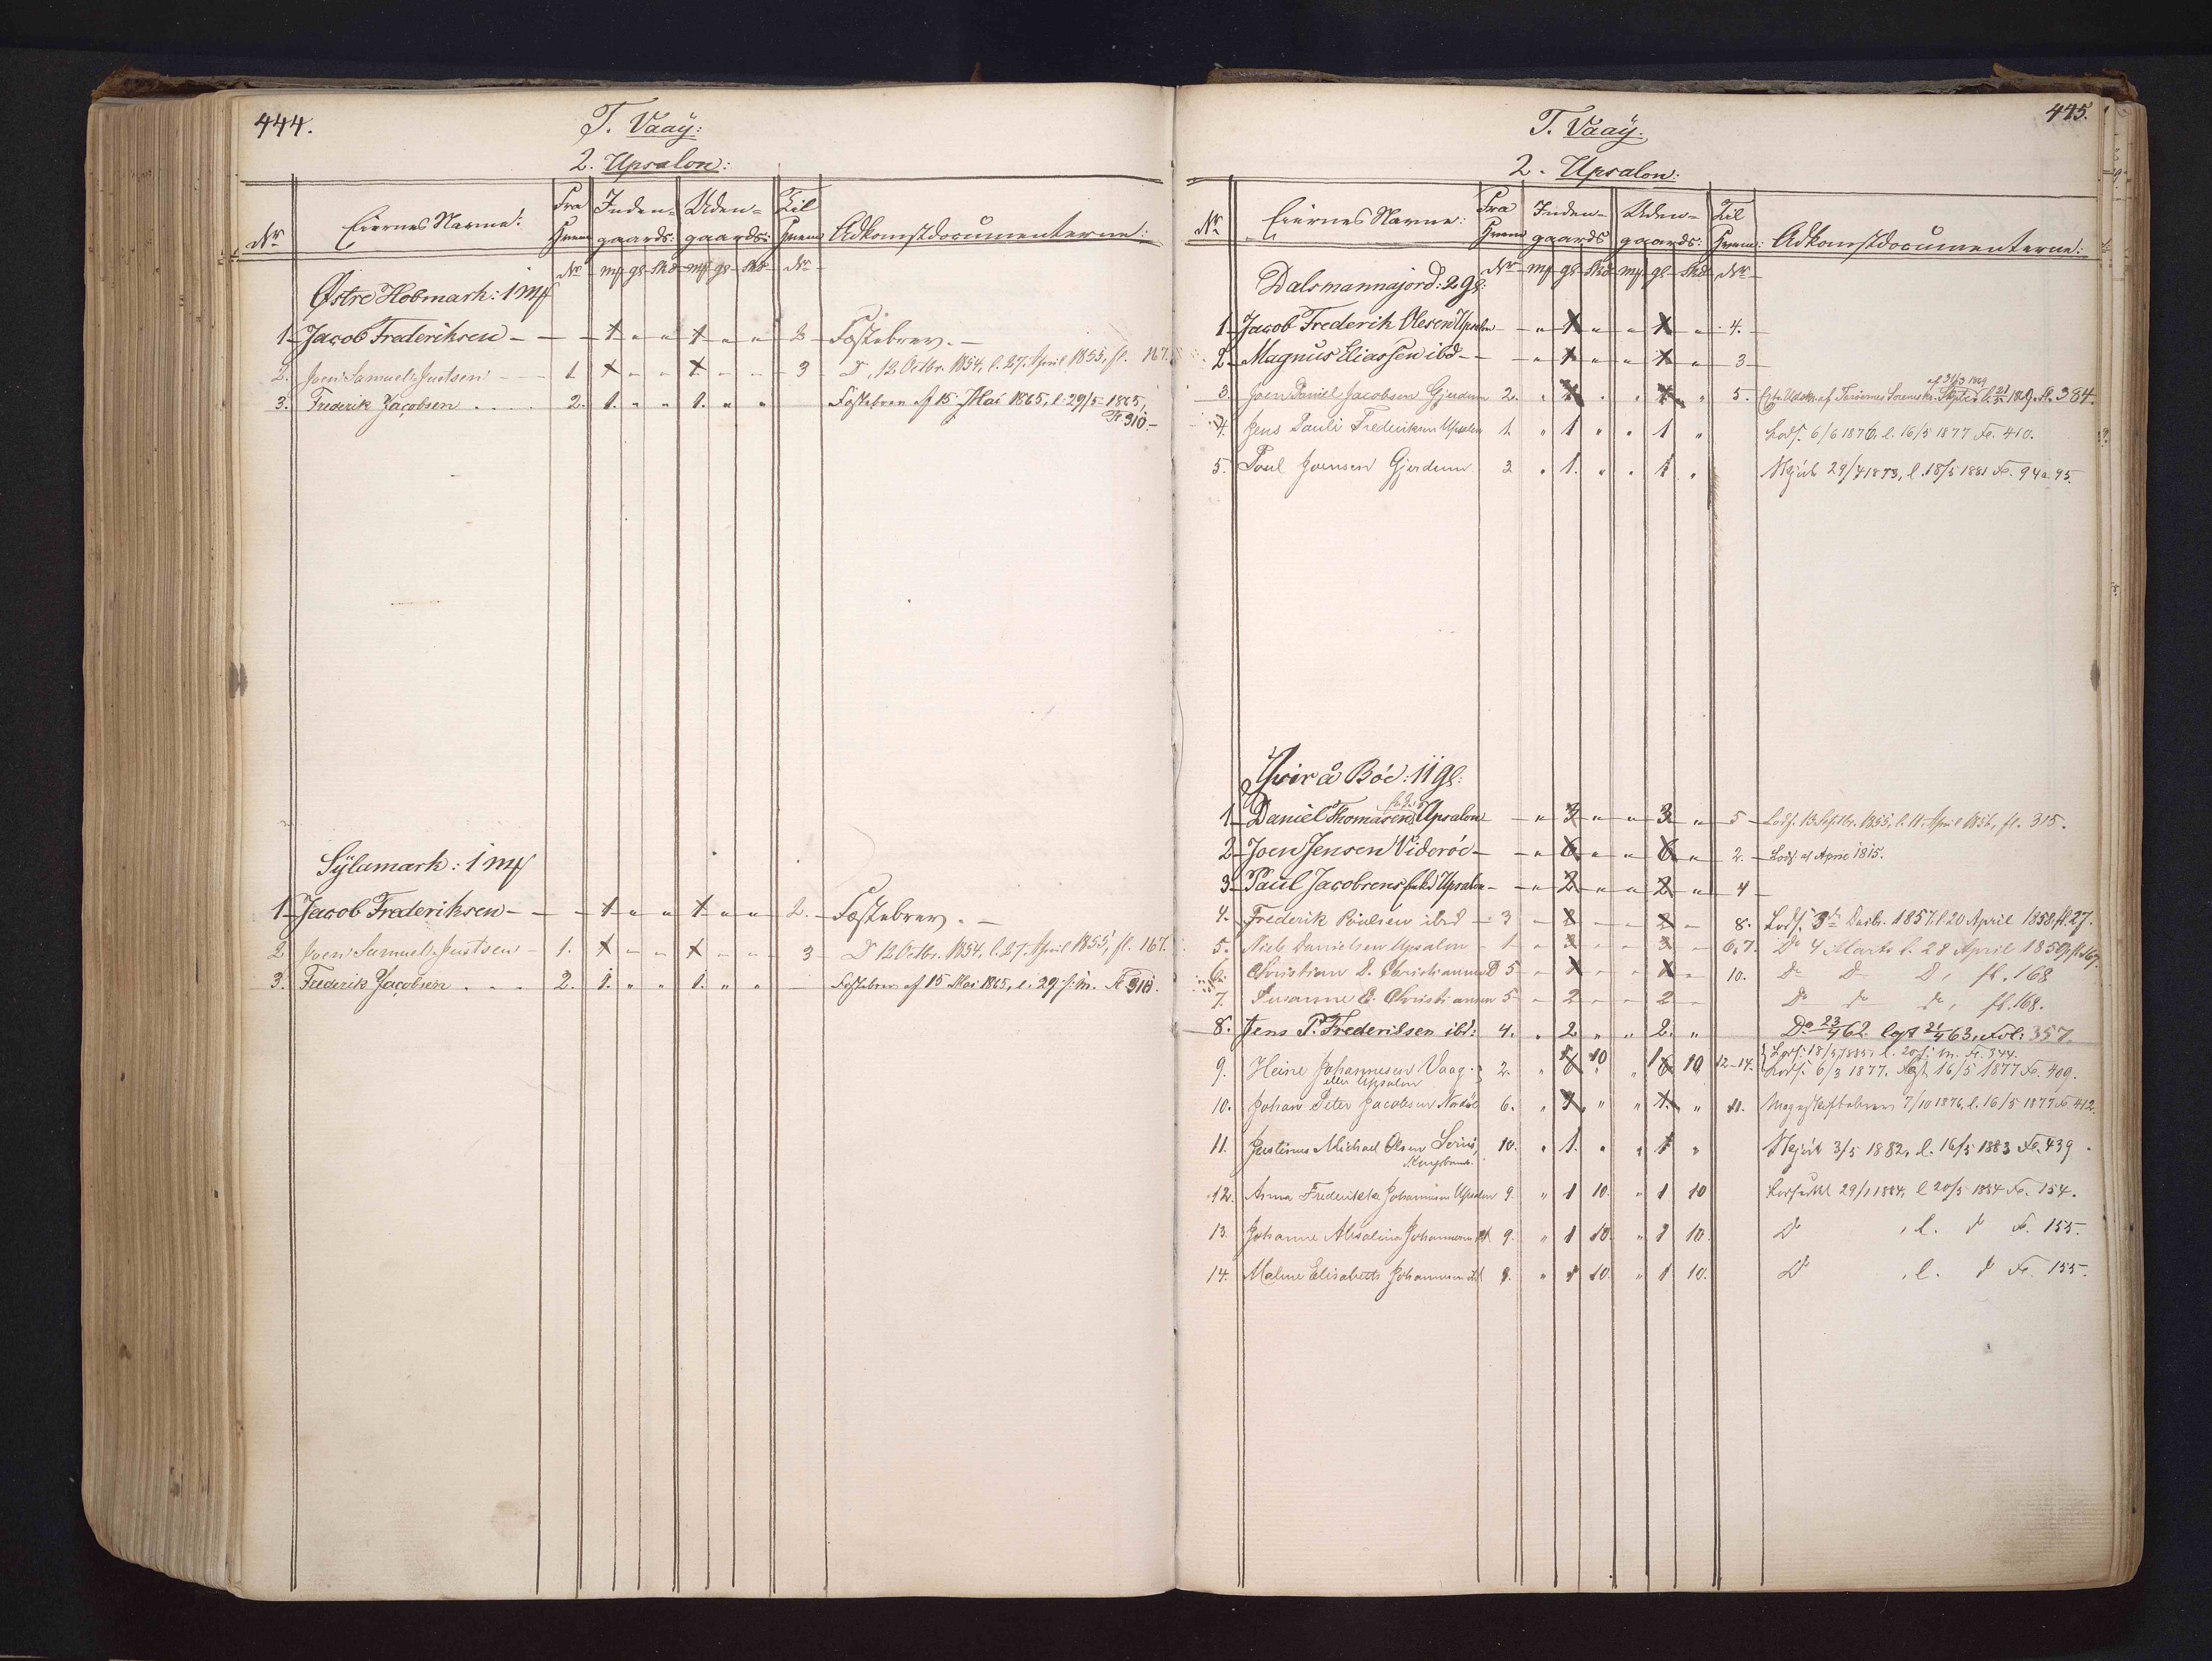 444.
T. Vaaÿ:
2. Upsalon:
Nr Eiernes Navne: Fra Inden- Uden- Til Adkomstdocumenterne:
gaards: gaards:
Nr mf gl Sk mf gl Sk Nr
Østre Hobmark: 1 mf
1 Jacob Frederiksen - - 1 " " 1 " " 2 Fæstebrev. -
2. Joen Samuel Justsen 1 1 - - 1 - - 3 D, 12 Octbr. 1854, l. 27. April 1855, fl. 167.
3. Frederik Jacobsen .... 2. 1. " " 1. " " Fæstebrev af 15 Mai 1865, l. 29/5 1865,
Fl 310 -
Sÿlamark: 1 mf
1 Jacob Frederiksen - - 1 " " 1 " " 2. Fæstebrev. -
2 Joen Samuel Justsen - 1. 1 - - 1 - - 3 D 12 Octbr. 1854, l. 27. April 1855, fl. 167.
3. Frederik Jacobsen ... 2. 1. " " 1. " " Fæstebrev af 15 Mai 1865, l. 29 s. m. Fl 310.
445.
T. Vaaÿ.
2. Upsalon:
Nr Eiernes Navne: Fra Inden- Uden- Til Adkomstdocumenterne:
gaards gaards:
Nr mf gl Sk mf gl Sk Nr
Dalsmannajord: 2 gl:
1 Jacob Frederik Olesen Upsalon - " 1 " " 1 " 4. -
2 Magnus Eliassen ibd - - " 1 " " 1 " 3 -
3. Joen Daniel Jacobsen Gjerdum 2. " 1 " " 1 " 5. af Færøernes Sorenskr. l. 1869. fl. 384.
4. Jens Pauli Frederiksen Upsalon 1. " 1 " " 1 " Lods. 6/6 1876, l. 16/5 1877 Fo. 410.
5. Poul Joensen Gjerdum. 2 " 1. " " 1 " 29/4 1873, l. 18/5 1881 Fo. 94 a 95.
Yvir å Bøe: 11 gl:
1 Daniel Thomasens Upsalon - " 3 " " 3 " 5 Lods. 13 Septbr. 1855, l. 11. April 1856, fl. 315.
2 Joen Jensen Viderøe - - " 6 " " 6 " 2. Lods. af April 1815.
3 Paul Jacobsens Upsalon - " 2 " " 2 " 4 -
4. Frederik Poulsen ibd - 3 - 2 - - 2 - 8. Lods. 3die Decbr. 1857. l. 20 April 1858. fl. 27.
5. Niels Danielsen Upsalon - 1 - 3 - - 3 - 6,7. Do 4 Marts l. 28 April 1859 fl. 167.
6. Christian D. Christiansen D 5 - 1 - - 1 - 10. Do D D, fl. 168
7. Susanne E. Christiansen 5 - 2 - - 2 - Do do do, fl. 168.
8. Jens P. Frederiksen ibd: 4. " 2 " " 2. " Do 23/4 62. lgt 21/4 63, Fol: 357.
9. Heine Johannesen Vaag. 2. " 6 10 " 6 10 12-14. Lods. 18/5 1885, l. 20 s. m. Fo. 344.
eller Upsalon Lods. 6/3 1877. lgt. 16/5 1877 Fo. 409.
10. Johan Peter Jacobsen 6. " 1 " " 1. " 11. Mageskiftebrev 7/10 1876, l. 16/5 1877 Fo 412.
11. Justinus Michael Olsen 10. " 1. " " 1 " 3/5 1882, l. 16/5 1883 Fo. 439.
12. Anna Frederikke Johannesen Upsalon 9. " 1 10. " 1 10 29/1 1884, l 20/5 1884 Fo. 154.
13. Johanne Alsalina Johannesen ibd 9. " 1 10. " 1 10. Do , l. do Fo. 155.
14. Malene Elisabeth Johannesen ibd 9. " 1 10. " 1 10. Do , l. do Fo. 155.